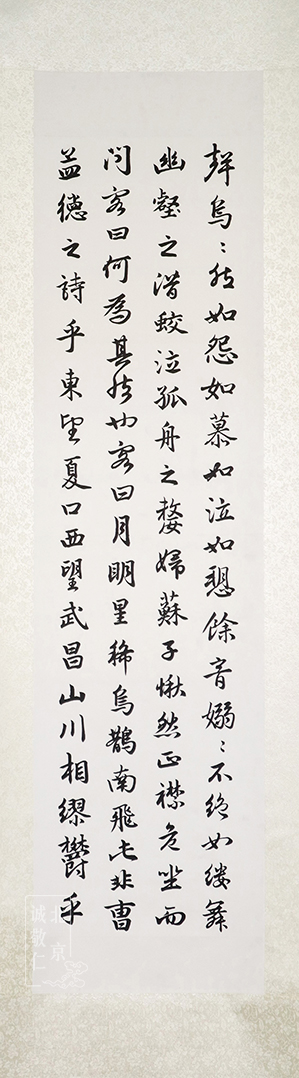 聲烏々然如怨如慕如泣如愬餘音嫋々不絕如縷舞
幽壑之潛蛟泣孤舟之嫠婦蘇子愀然正襟危坐而
問客曰何為其然也客曰月明星稀烏鵲南飛此非曹
孟德之詩乎東望夏口西望武昌山川相繆鬱乎
北京
诚敬仁